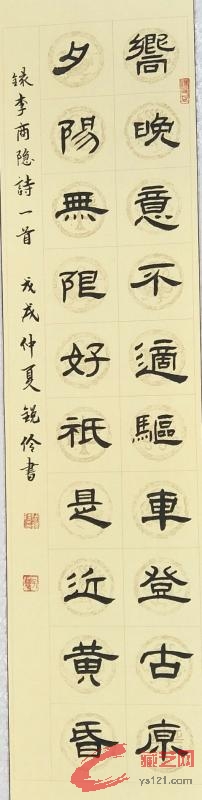 嚮晚意不適驅車登古原
夕陽無限好祇是近黄昏
録李商隐詩一首 戊戌仲夏 锐伶書
ys121.com